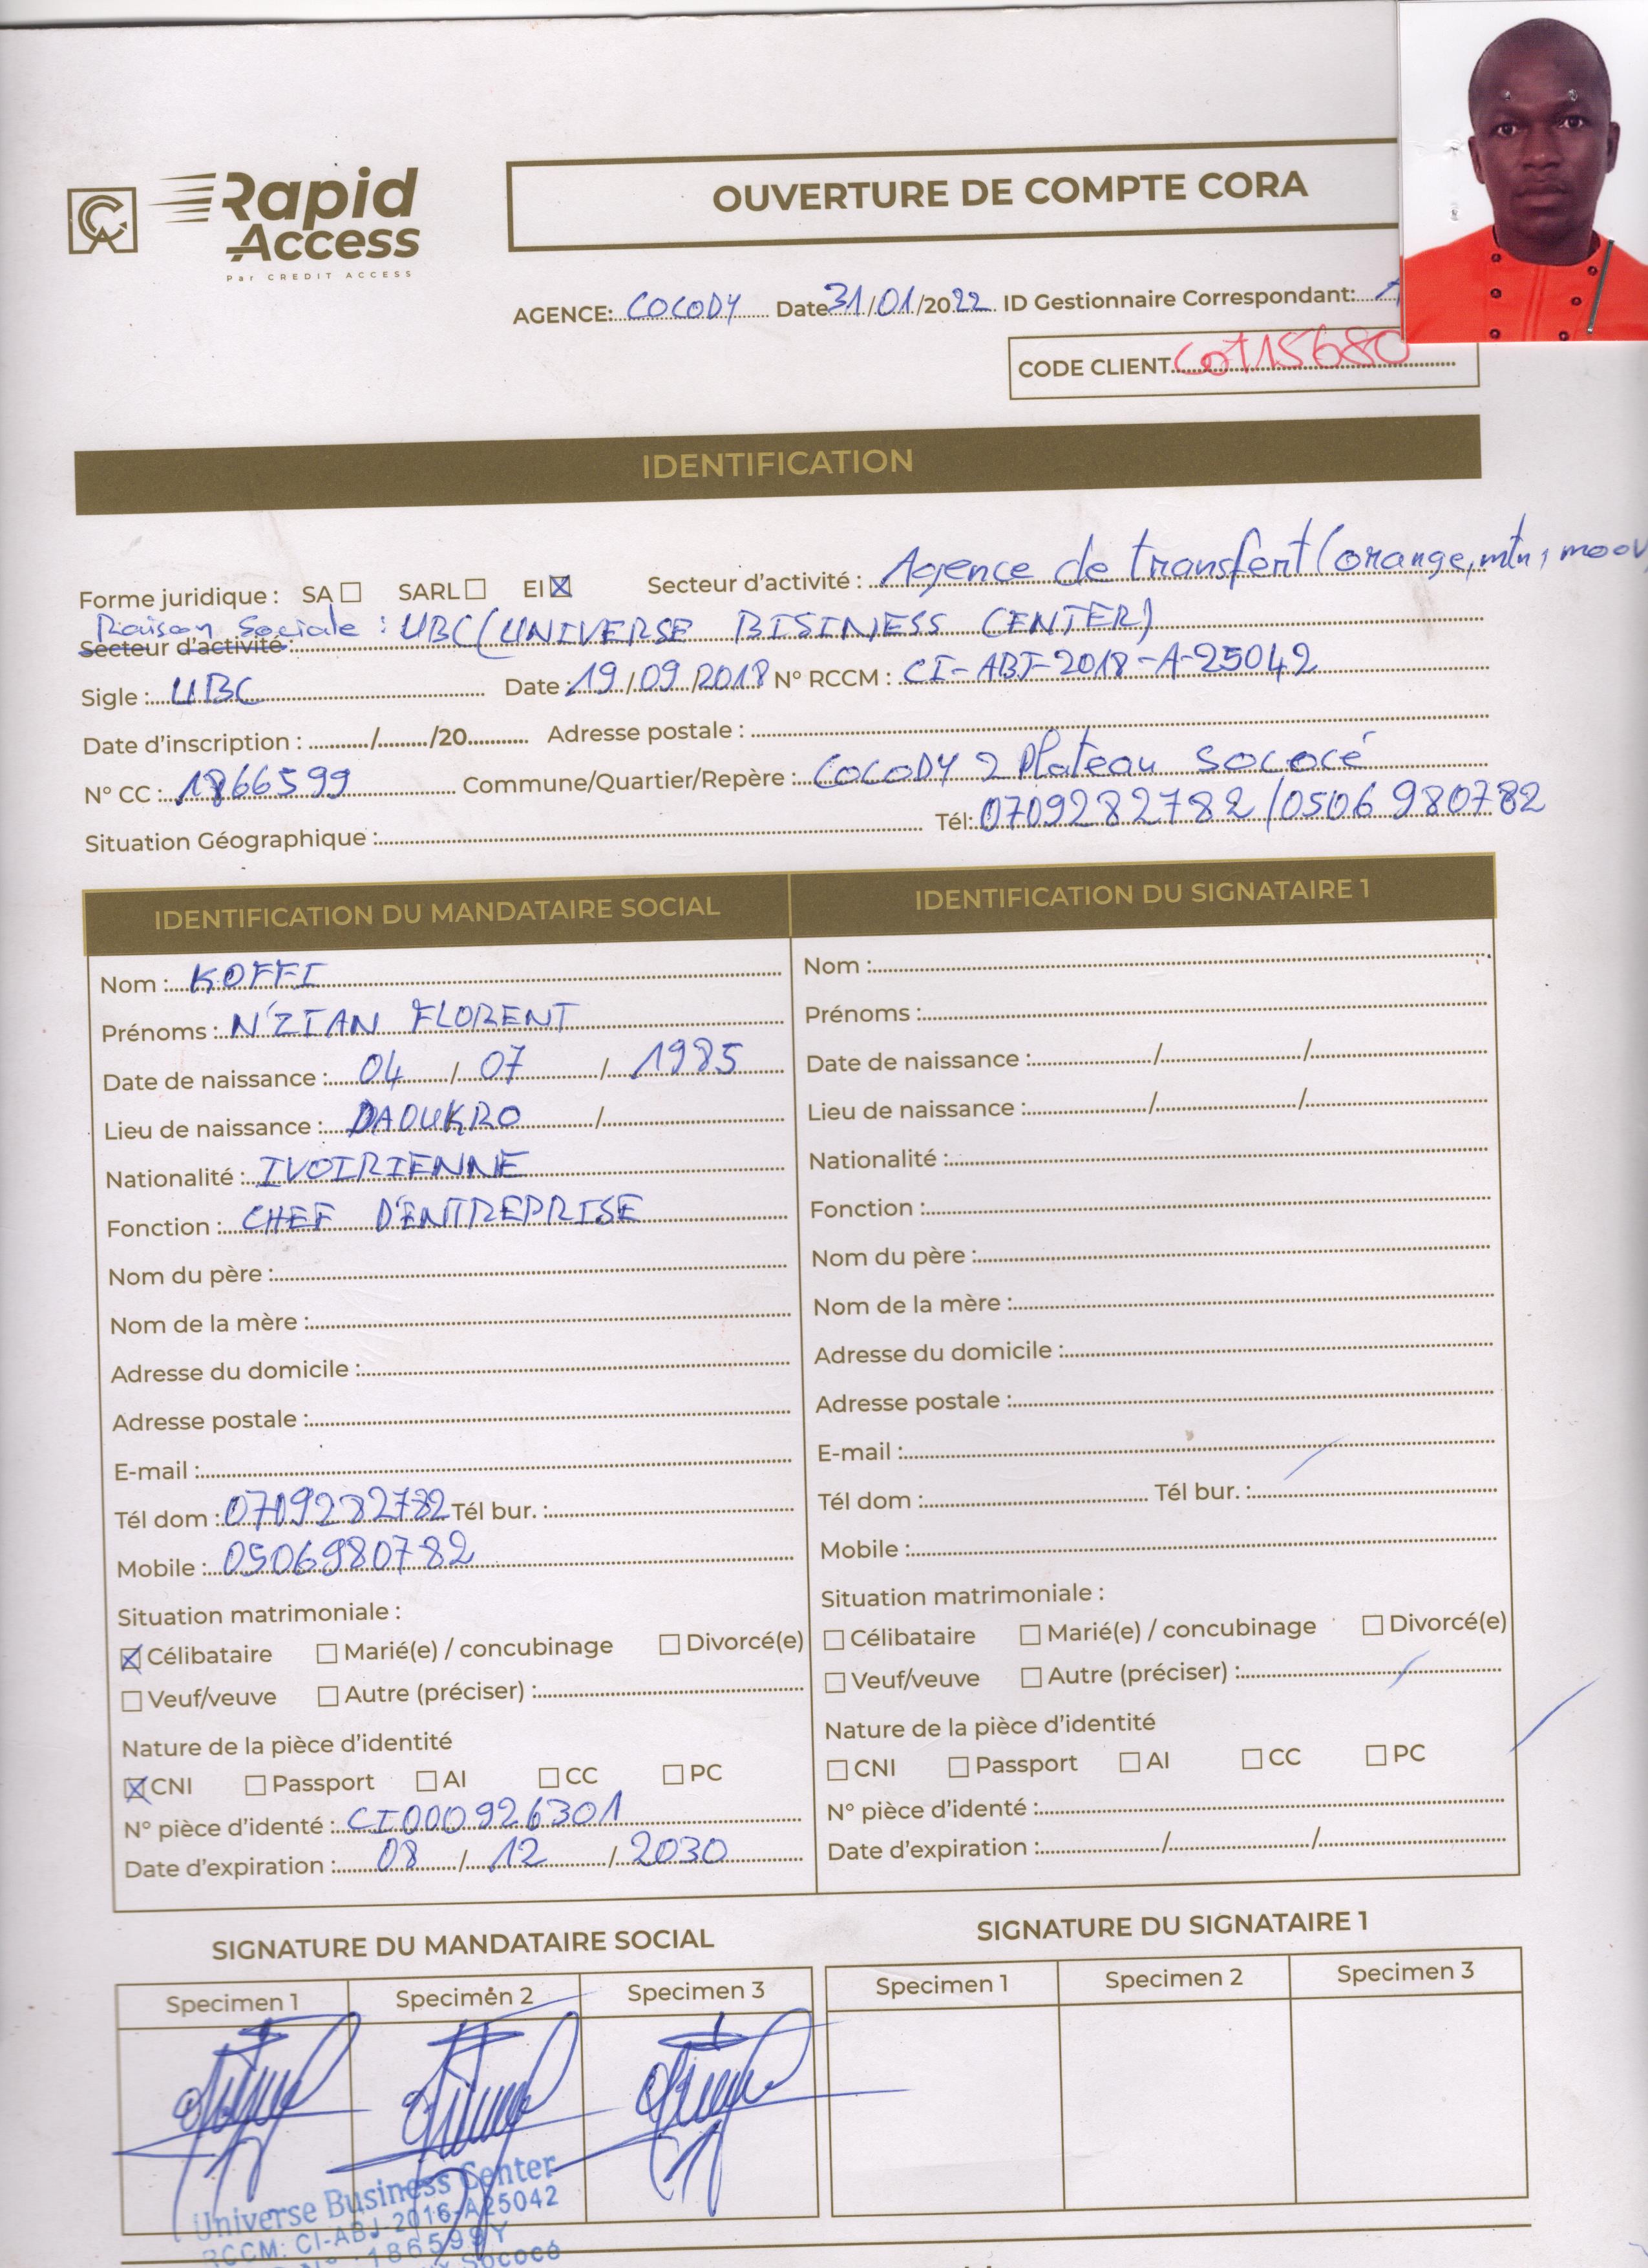 Rapid Access
Par CREDIT ACCESS
OUVERTURE DE COMPTE CORA
AGENCE: COCODY Date 31/01/2022 ID Gestionnaire Correspondant:
CODE CLIENT Cot15680
IDENTIFICATION
Forme juridique : SA SARL EI Secteur d'activité : Agence de transfert (orange, mtn, moov
Raison Sociale : UBC (UNIVERSE BISINESS CENTER)
Secteur d'activité :
Sigle : UBC Date : 19/09/2018 N° RCCM : CI-ABJ-2018-A-25042
Date d'inscription : ........../........./20........... Adresse postale :
N° CC : 1866599 Commune/Quartier/Repère : COCODY 2 Plateau Sococé
Situation Géographique : Tél: 0709282782/0506980782
IDENTIFICATION DU MANDATAIRE SOCIAL
Nom : KOFFI
Prénoms : N'ZIAN FLORENT
Date de naissance : 04 / 07 / 1985
Lieu de naissance : DAOUKRO /
Nationalité : IVOIRIENNE
Fonction : CHEF D'ENTREPRISE
Nom du père :
Nom de la mère :
Adresse du domicile :
Adresse postale :
E-mail :
Tél dom : 0709282782 Tél bur. :
Mobile : 0506980782
Situation matrimoniale :
Célibataire Marié(e) / concubinage Divorcé(e)
Veuf/veuve Autre (préciser) :
Nature de la pièce d'identité
CNI Passport AI CC PC
N° pièce d'identé : CI000926301
Date d'expiration : 08 / 12 / 2030
IDENTIFICATION DU SIGNATAIRE 1
Nom :
Prénoms :
Date de naissance : / /
Lieu de naissance : / /
Nationalité :
Fonction :
Nom du père :
Nom de la mère :
Adresse du domicile :
Adresse postale :
E-mail :
Tél dom : Tél bur. :
Mobile :
Situation matrimoniale :
Célibataire Marié(e) / concubinage Divorcé(e)
Veuf/veuve Autre (préciser) :
Nature de la pièce d'identité
CNI Passport AI CC PC
N° pièce d'identé :
Date d'expiration : / /
SIGNATURE DU MANDATAIRE SOCIAL
Specimen 1 Specimen 2 Specimen 3
SIGNATURE DU SIGNATAIRE 1
Specimen 1 Specimen 2 Specimen 3
Universe Business Center
RCCM: CI-ABJ-2016-A25042
186599Y
Sococé